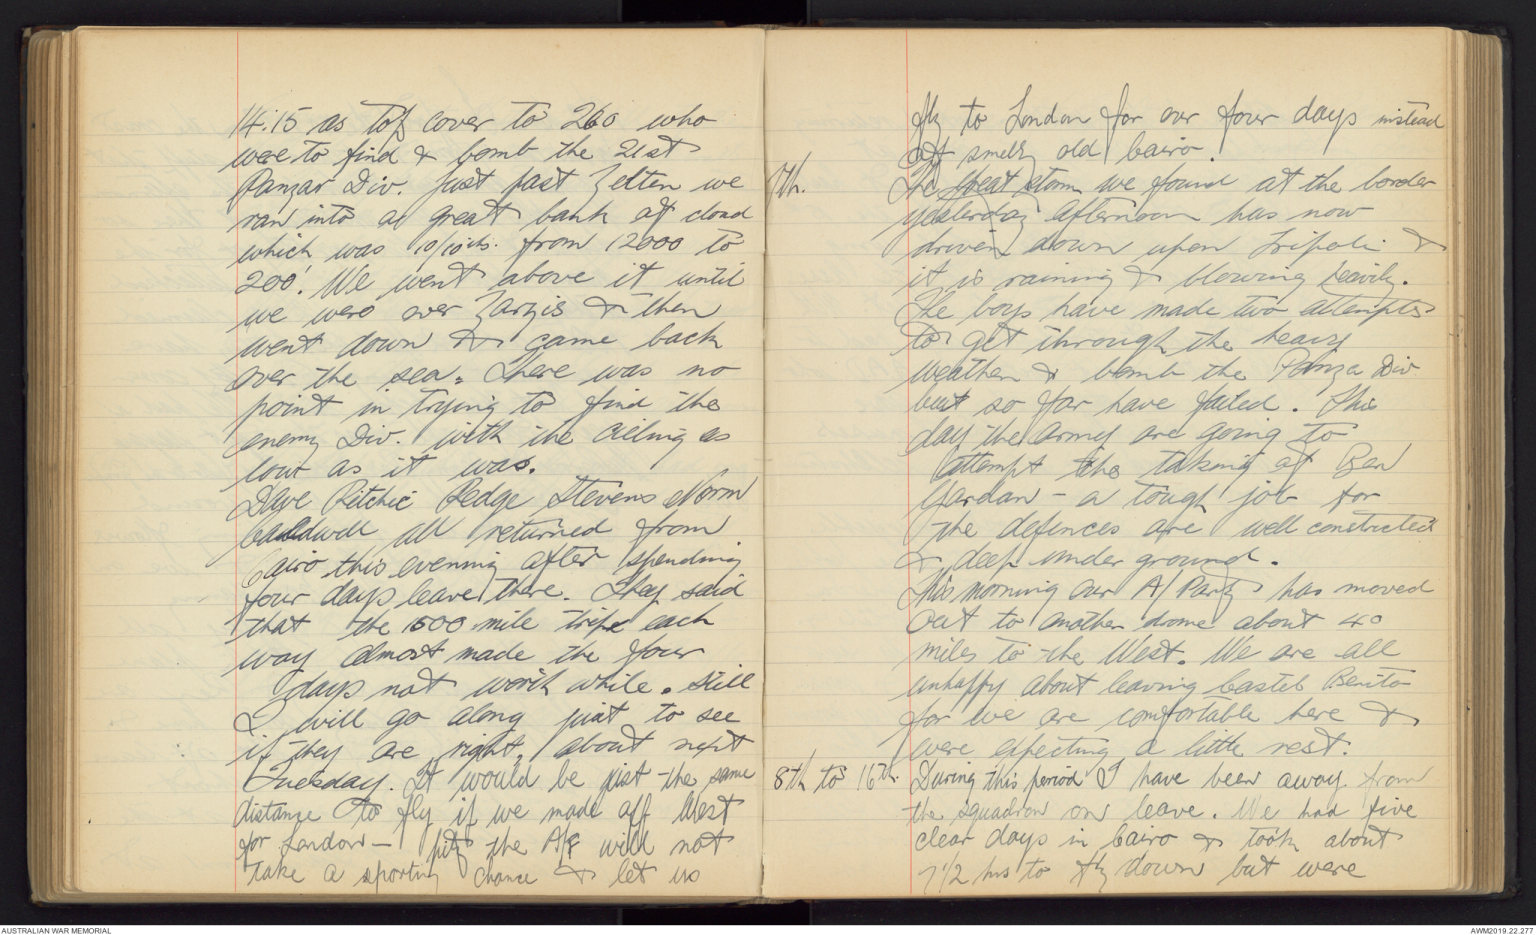 14.15 as top cover to 260 who
were to find & bomb the 21st
Panzar Div. Just past Zelten we
ran into a great bank of cloud
which was 10/10ths. from 12000 to
200'. We went above it until
we were over Zarzis & then
went down & came back
over the sea. There was no
point in trying to find the
enemy Div. with the ceiling as
low as it was.
Dave Ritchie Redge Stevens Norm
Cauldwell all returned from
Cairo this evening after spending
four days leave there. They said
that the 1500 mile trip each
way almost made the four
days not worth while. Still
I will go along just to see
if they are right, about next
Tuesday. It would be just the same
distance to fly if we made off West
for London – pity the A/F will not
take a sporting chance & let us
fly to London for our four days instead
of smelly old Cairo.
7th.
The great storm we found at the border
yesterday afternoon has now
driven down upon Tripoli &
it is raining & blowing heavily.
The boys have made two attempts
to get through the heavy
weather & bomb the Panza Div
but so far have failed. This
day the army are going to
attempt the taking of Ben
Gardan – a tough job for
the defences are well constructed
& deep under ground.
This morning our A/Party has moved
out to another drome about 40
miles to the West. We are all
unhappy about leaving Castel Benito
for we are comfortable here &
were expecting a little rest.
8th to 16th.
During this period I have been away from
the squadron on leave. We had five
clear days in Cairo & took about
7 1/2 hrs to fly down but were
AUSTRALIAN WAR MEMORIAL
AWM2019.22.277